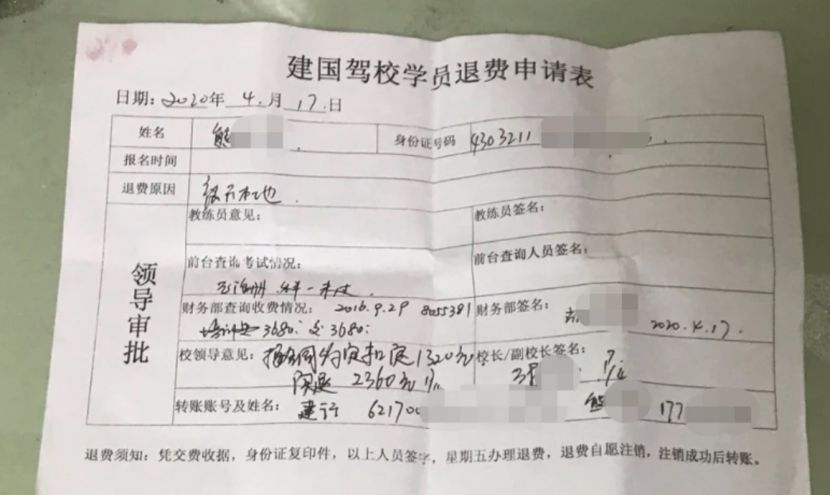 建国驾校学员退费申请表
日期：2020年 4 月 17 日
姓名 熊 身份证号码 4303211
报名时间
退费原因
教练员意见： 教练员签名：
领导审批
前台查询考试情况： 前台查询人员签名：
财务部查询收费情况： 2016.9.29 8055381 财务部签名：
培训费 3680: 交 3680: 2020.4.17.
校领导意见： 扣除1320元 校长/副校长签名：
2360元
转账账号及姓名： 建行 621700 熊 177
退费须知：凭交费收据，身份证复印件，以上人员签字，星期五办理退费，退费自愿注销，注销成功后转账。